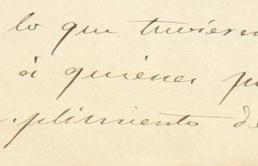 lo que tuvieren
á quienes p
plimiento de